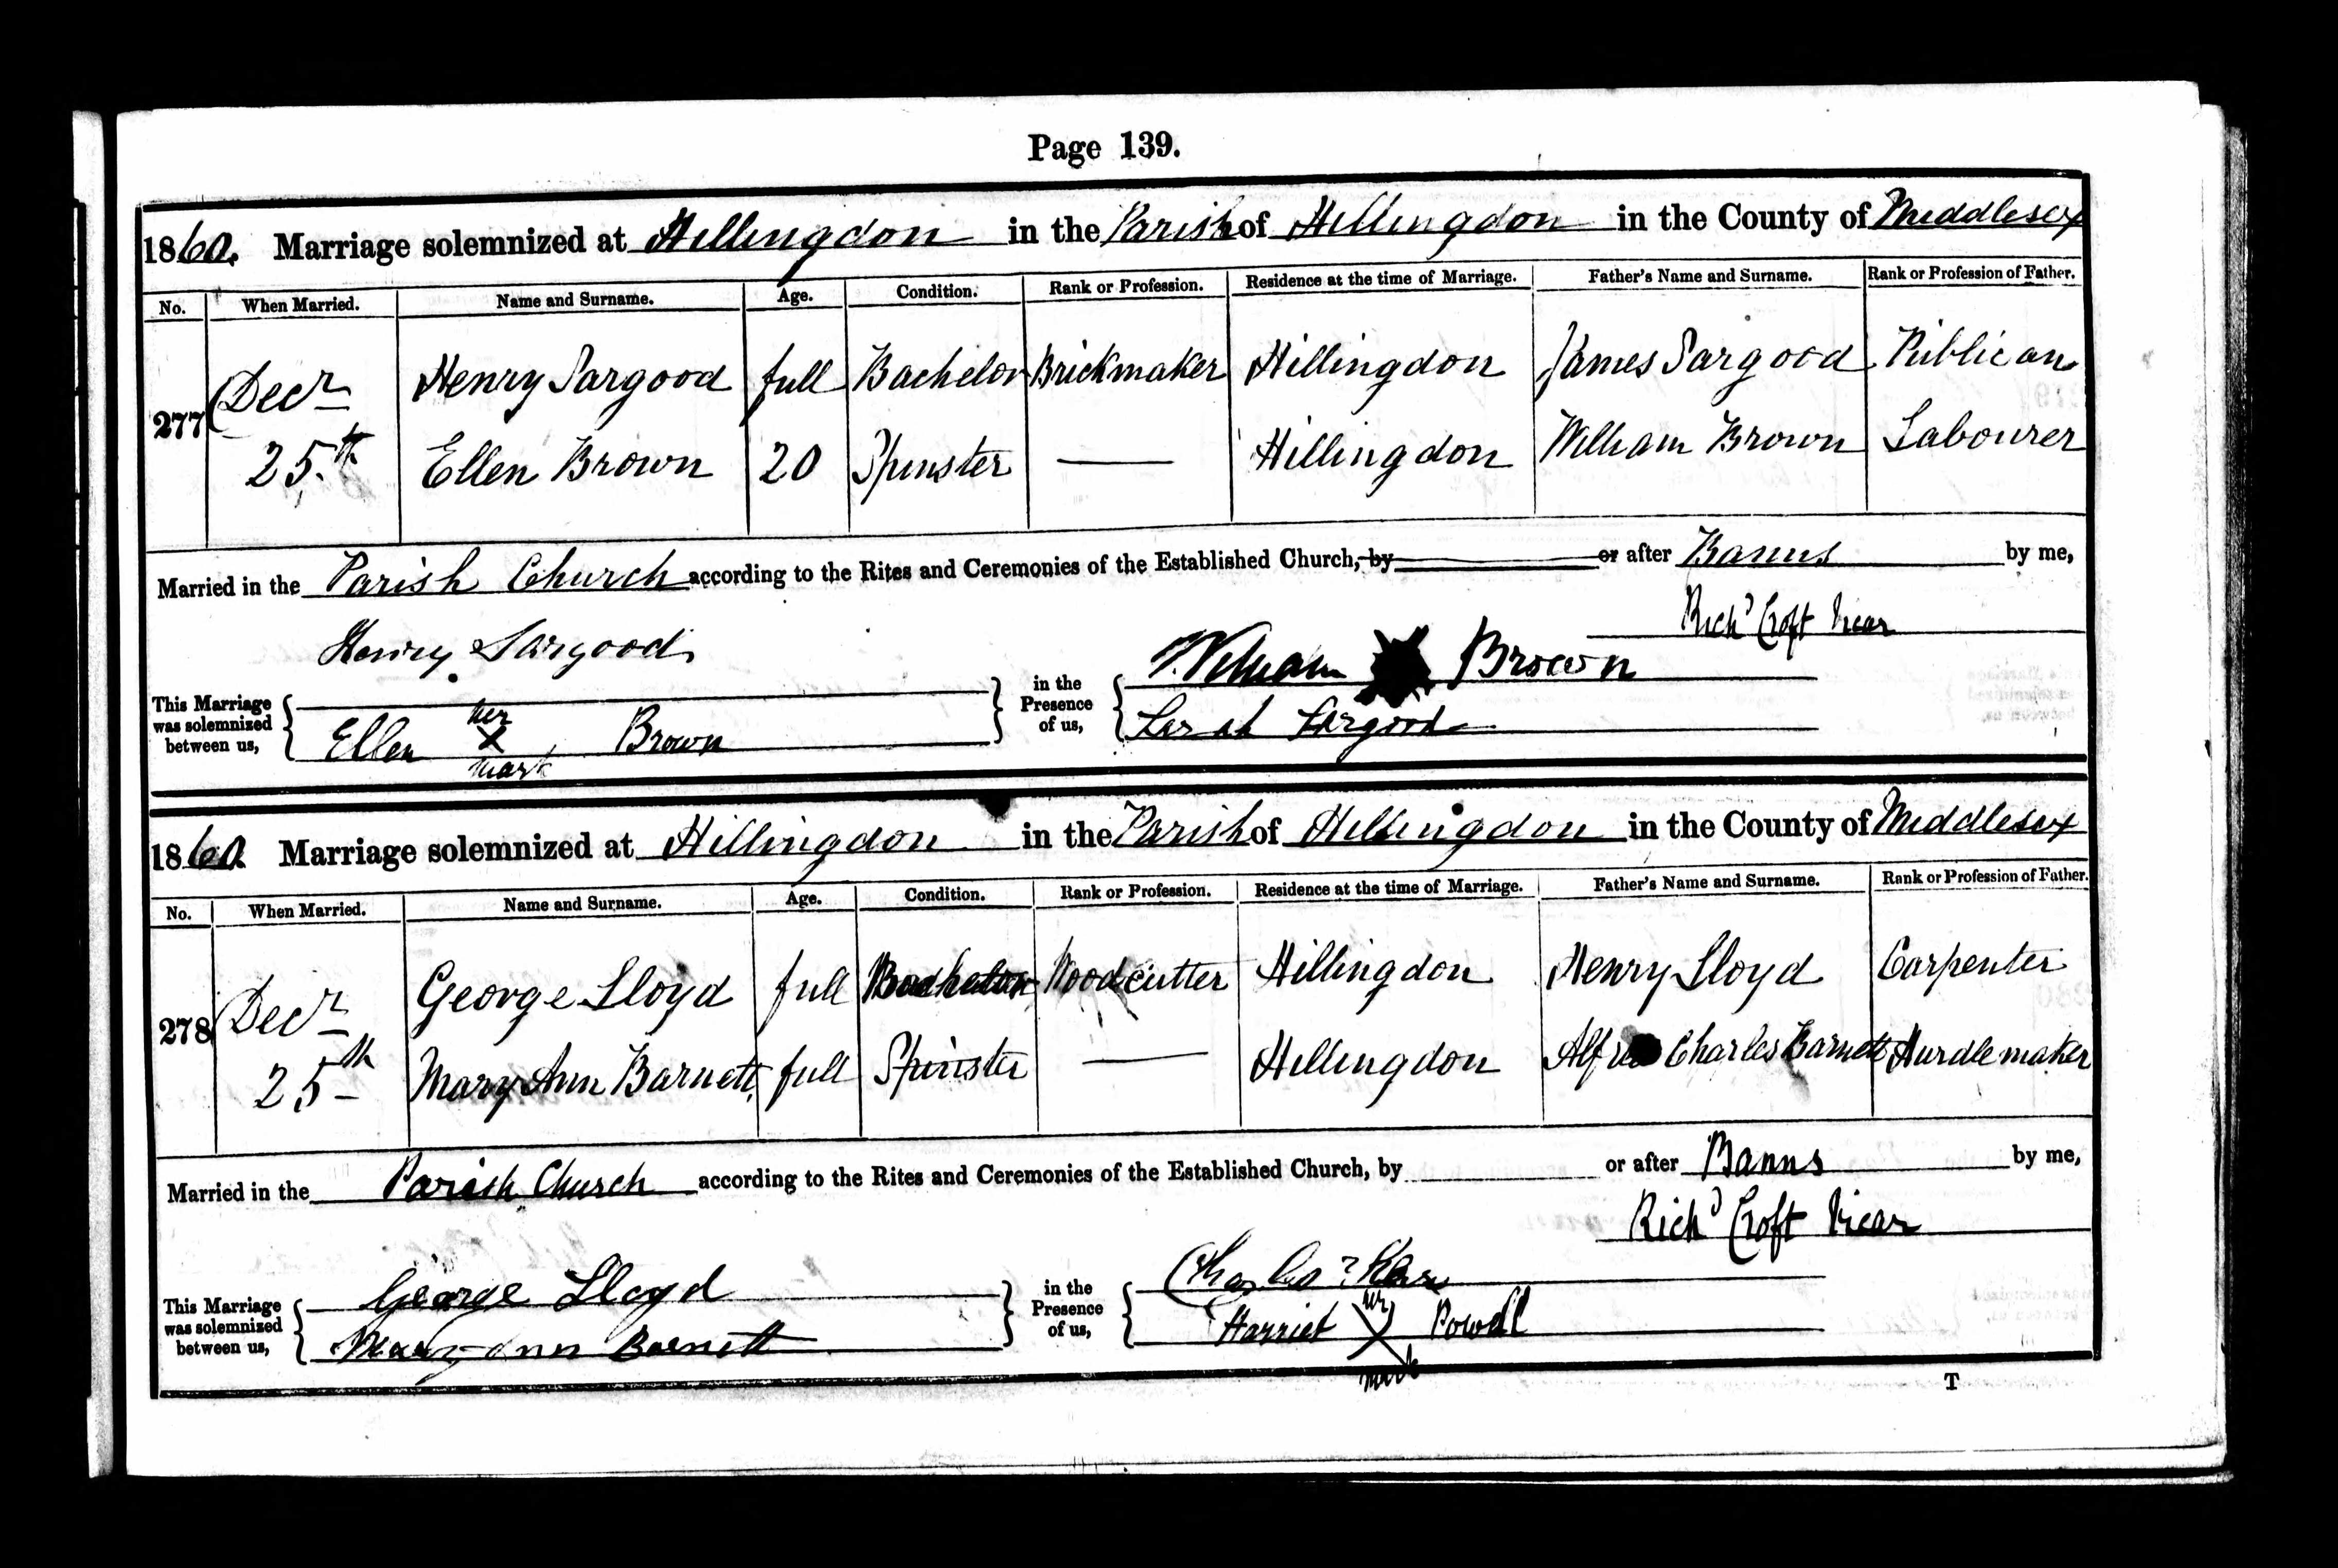 Page 139.
1860. Marriage solemnized at Hillingdon in the Parish of Hillingdon in the County of Middlesex
No. When Married. Name and Surname. Age. Condition. Rank or Profession. Residence at the time of Marriage. Father's Name and Surname. Rank or Profession of Father.
277 Decr Henry Sargood full Bachelor Brickmaker Hillingdon James Sargood Publican
25th Ellen Brown 20 Spinster — Hillingdon William Brown Labourer
Married in the Parish Church according to the Rites and Ceremonies of the Established Church, by or after Banns by me,
Richd Croft Vicar
Henry Sargood
William Brown
This Marriage was solemnized between us,
in the Presence of us,
Ellen her X mark Brown
Sarah Sargood
1860. Marriage solemnized at Hillingdon in the Parish of Hillingdon in the County of Middlesex
No. When Married. Name and Surname. Age. Condition. Rank or Profession. Residence at the time of Marriage. Father's Name and Surname. Rank or Profession of Father.
278 Decr George Lloyd full Bachelor Woodcutter Hillingdon Henry Lloyd Carpenter
25th Mary Ann Barnett full Spinster — Hillingdon Alfred Charles Barnett Hurdle maker
Married in the Parish Church according to the Rites and Ceremonies of the Established Church, by or after Banns by me,
Richd Croft Vicar
George Lloyd
Charles
This Marriage was solemnized between us,
in the Presence of us,
Mary Ann Barnett
Harriet her X mark Powell
T